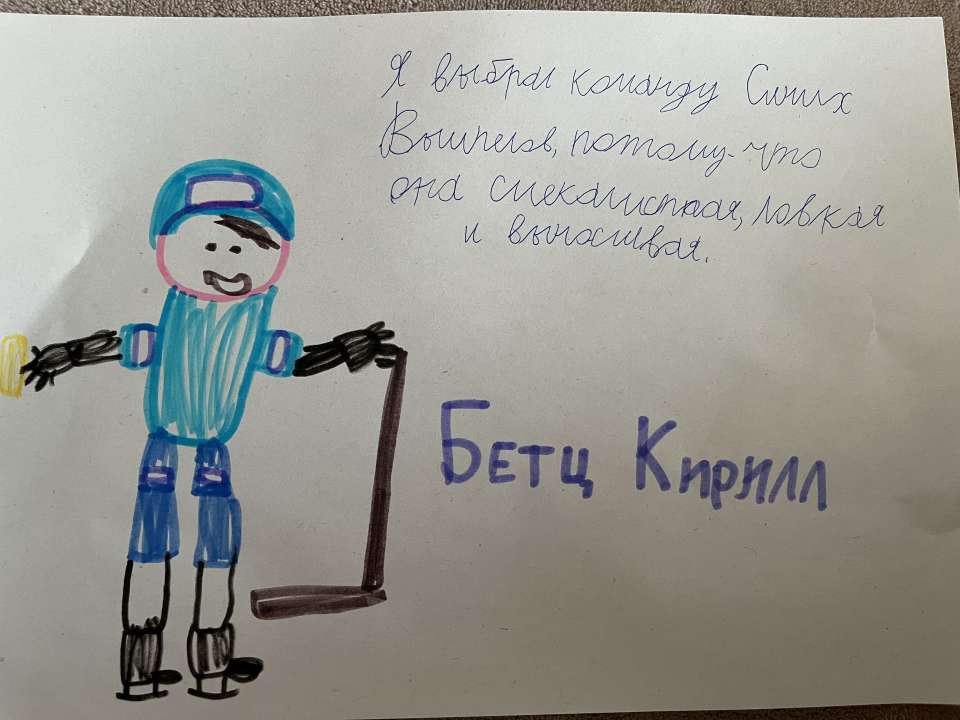 Я выбрал команду Синих
Вымпелов, потому-что
она смекалистая, ловкая
и выносливая.
Бетц Кирилл